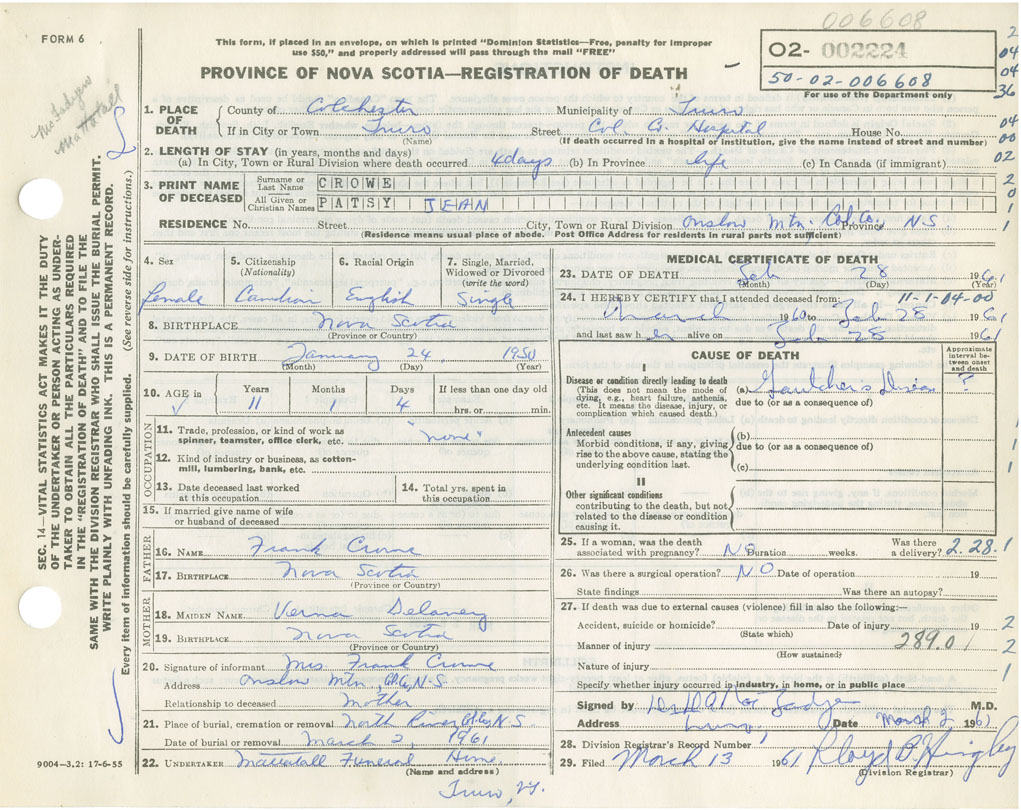 006608
FORM 6
This form, if placed in an envelope, on which is printed "Dominion Statistics—Free, penalty for improper
use $50," and properly addressed will pass through the mail "FREE"
PROVINCE OF NOVA SCOTIA—REGISTRATION OF DEATH
02-002224
50-02-006608
For use of the Department only
2
04
04
36
04
00
02
2
0
1
1
McFadyen
Mattatall
SEC. 14—VITAL STATISTICS ACT MAKES IT THE DUTY
OF THE UNDERTAKER OR PERSON ACTING AS UNDER-
TAKER TO OBTAIN ALL THE PARTICULARS REQUIRED
IN THE "REGISTRATION OF DEATH" AND TO FILE THE
SAME WITH THE DIVISION REGISTRAR WHO SHALL ISSUE THE BURIAL PERMIT.
WRITE PLAINLY WITH UNFADING INK. THIS IS A PERMANENT RECORD.
Every item of information should be carefully supplied. (See reverse side for instructions.)
1. PLACE OF DEATH
County of Colchester Municipality of Truro
If in City or Town Truro Street Col. Co. Hospital House No.
(Name) (If death occurred in a hospital or institution, give the name instead of street and number)
2. LENGTH OF STAY (in years, months and days)
(a) In City, Town or Rural Division where death occurred 4 days (b) In Province life (c) In Canada (if immigrant)
3. PRINT NAME OF DECEASED
Surname or Last Name CROWE
All Given or Christian Names PATSY JEAN
RESIDENCE No. Street City, Town or Rural Division Onslow Mtn. Col. Co. Province N.S.
(Residence means usual place of abode. Post Office Address for residents in rural parts not sufficient)
4. Sex
female
5. Citizenship (Nationality)
Canadian
6. Racial Origin
English
7. Single, Married, Widowed or Divorced (write the word)
Single
8. BIRTHPLACE Nova Scotia
(Province or Country)
9. DATE OF BIRTH January 24, 1950
(Month) (Day) (Year)
10. AGE in
Years Months Days If less than one day old
11 1 4 hrs. or min.
OCCUPATION
11. Trade, profession, or kind of work as spinner, teamster, office clerk, etc. "none"
12. Kind of industry or business, as cotton-mill, lumbering, bank, etc.
13. Date deceased last worked at this occupation
14. Total yrs. spent in this occupation
15. If married give name of wife or husband of deceased
FATHER
16. NAME Frank Crowe
17. BIRTHPLACE Nova Scotia
(Province or Country)
MOTHER
18. MAIDEN NAME Verna Delaney
19. BIRTHPLACE Nova Scotia
(Province or Country)
20. Signature of informant Mrs. Frank Crowe
Address Onslow Mtn., Col. Co, N.S.
Relationship to deceased mother
21. Place of burial, cremation or removal North River, Col. Co, N.S.
Date of burial or removal March 2, 1961
22. UNDERTAKER Mattatall Funeral Home
(Name and address)
Truro, N.S.
9004-3.2: 17-6-55
MEDICAL CERTIFICATE OF DEATH
23. DATE OF DEATH Feb 28 1961
(Month) (Day) (Year)
24. I HEREBY CERTIFY that I attended deceased from: 11-1-04-00
March 1960 to Feb 28 1961
and last saw her alive on Feb 28 1961
CAUSE OF DEATH
Approximate interval between onset and death
I
Disease or condition directly leading to death
(This does not mean the mode of dying, e.g., heart failure, asthenia, etc. It means the disease, injury, or complication which caused death.)
(a) Gaucher's Disease ?
due to (or as a consequence of)
Antecedent causes
Morbid conditions, if any, giving rise to the above cause, stating the underlying condition last.
(b)
due to (or as a consequence of)
(c)
II
Other significant conditions
contributing to the death, but not related to the disease or condition causing it.
1
1
1
25. If a woman, was the death associated with pregnancy? NO Duration weeks. Was there a delivery? 2.28.1
26. Was there a surgical operation? NO Date of operation 19
State findings Was there an autopsy?
27. If death was due to external causes (violence) fill in also the following:—
Accident, suicide or homicide? Date of injury 19 2
(State which)
Manner of injury 289.0 2
(How sustained)
Nature of injury 1
Specify whether injury occurred in industry, in home, or in public place
Signed by M.D.
Address Truro, Date March 2 1961
28. Division Registrar's Record Number
29. Filed March 13 1961 Lloyd B. Hingley
(Division Registrar)